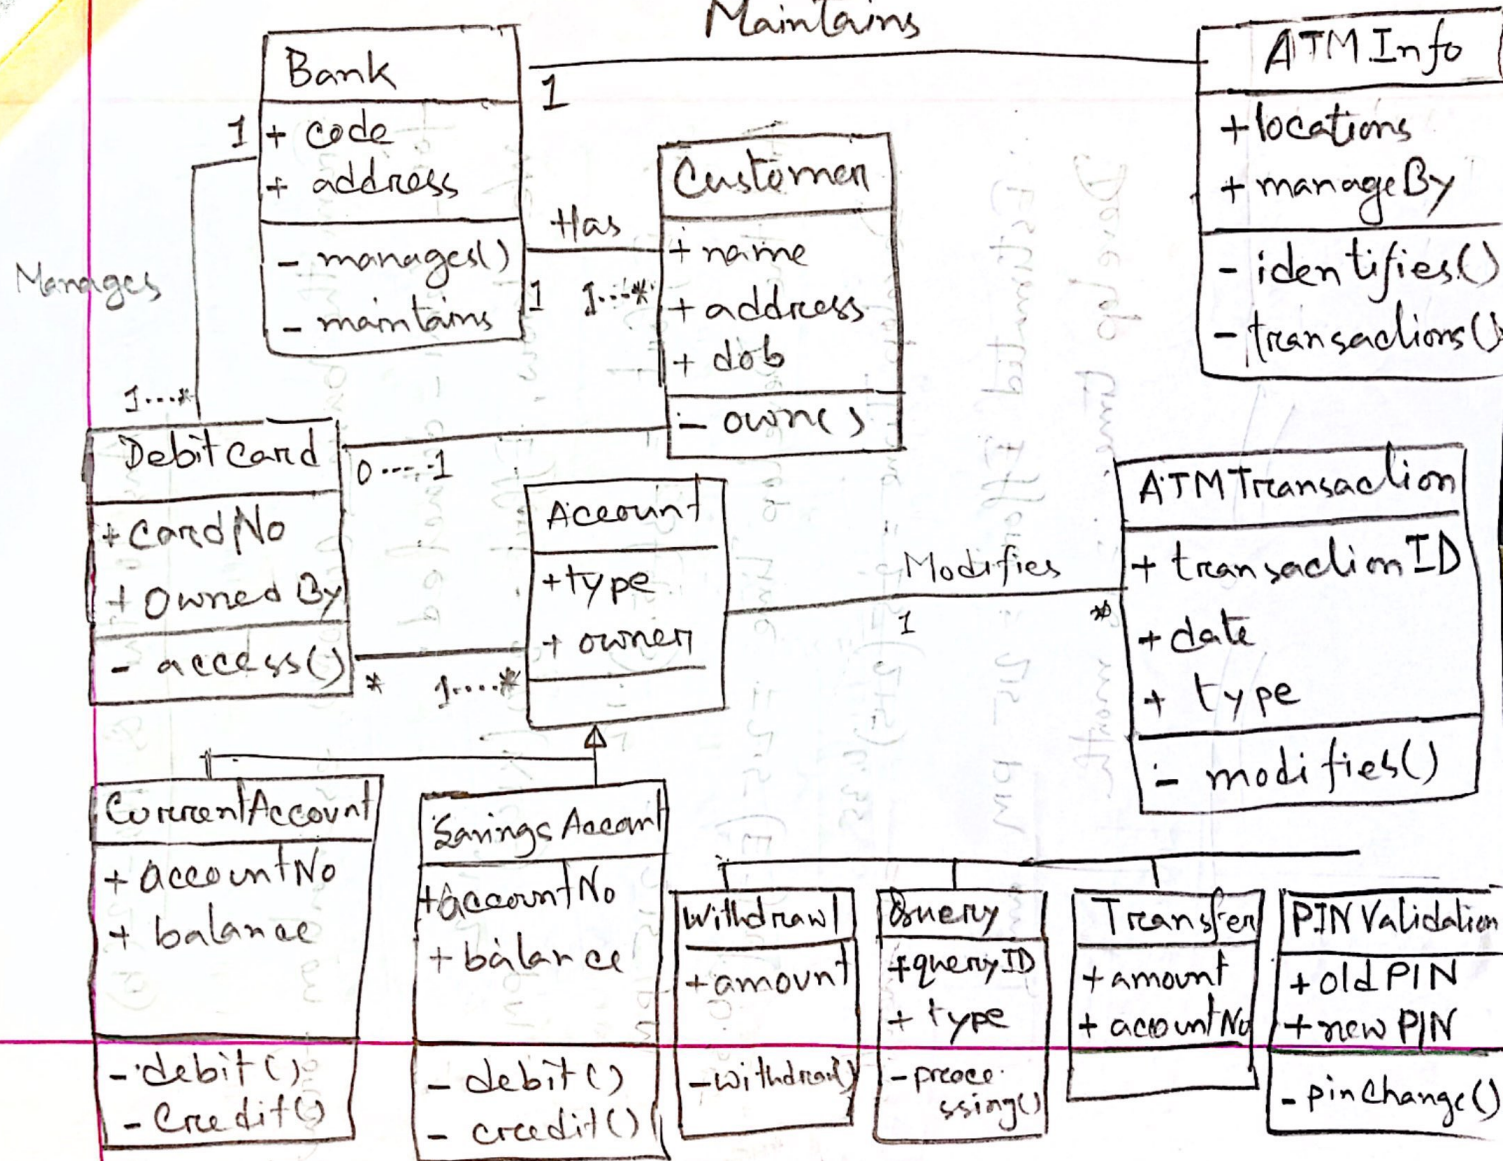 Maintains
Bank
+ code
+ address
- manages()
- maintains
1
1
Manages
1...*
Has
1
1...*
Customer
+ name
+ address
+ dob
- owns
ATM Info
+ locations
+ manageBy
- identifies()
- transactions()
DebitCard
+ cardNo
+ OwnedBy
- access()
0....1
*
1....*
Account
+ type
+ owner
Modifies
1
*
ATMTransaction
+ transactionID
+ date
+ type
- modifies()
CurrentAccount
+ accountNo
+ balance
- debit()
- Credit()
Savings Account
+ accountNo
+ balance
- debit()
- credit()
Withdrawl
+ amount
- withdrawl()
Query
+ queryID
+ type
- proce
ssing()
Transfer
+ amount
+ accountNo
PIN Validation
+ old PIN
+ new PIN
- pinChange()